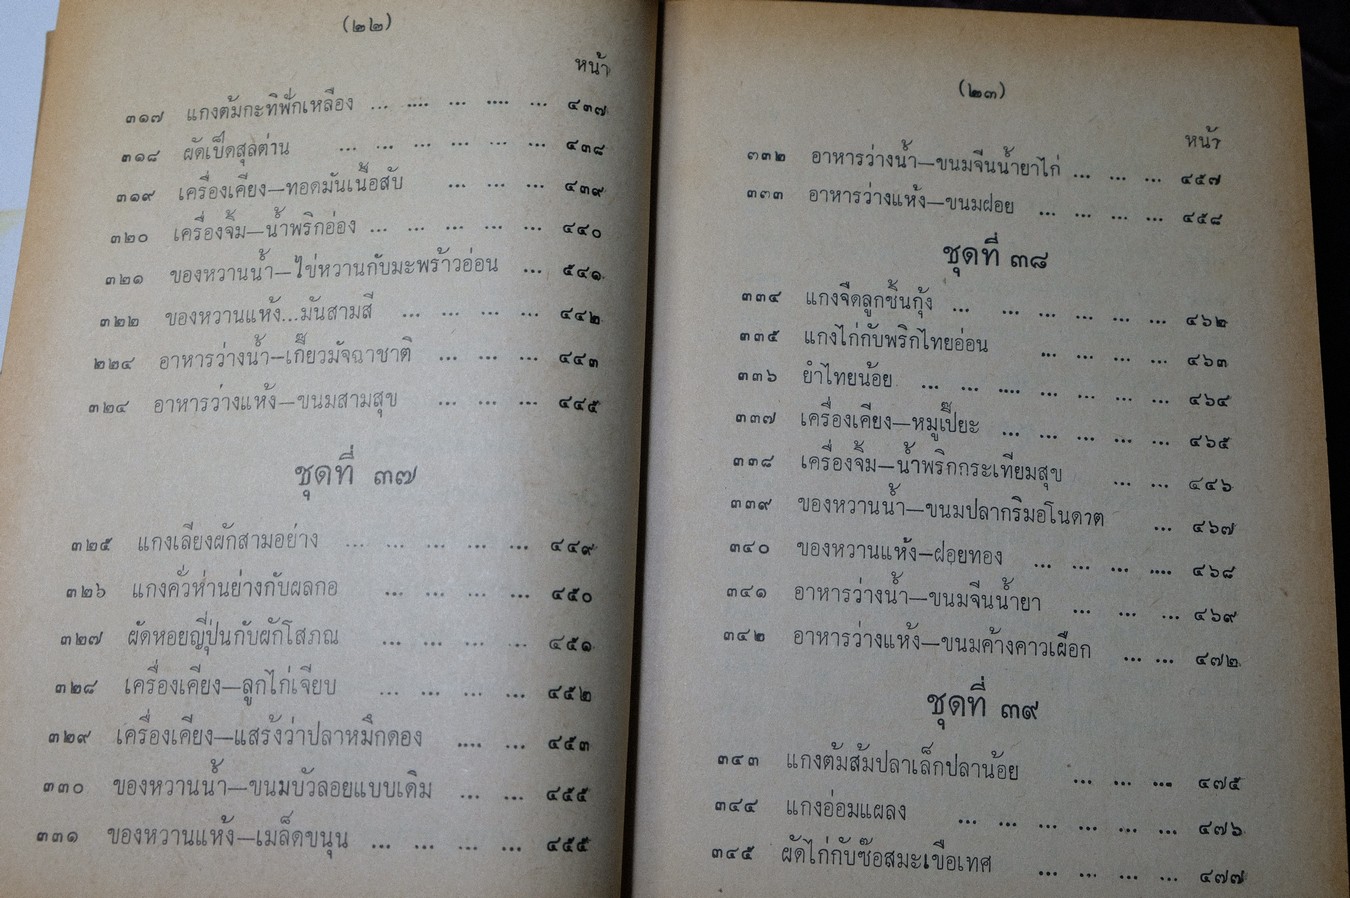 (๒๒)
หน้า
๓๑๗ แกงต้มกะทิฟักเหลือง ... .... ... .... ... ๔๓๗
๓๑๘ ผัดเป็ดสุลต่าน ... ... ... ... ... ๔๓๘
๓๑๙ เครื่องเคียง—ทอดมันเนื้อสับ ... ... ... ๔๓๙
๓๒๐ เครื่องจิ้ม—น้ำพริกอ่อง ... ... ... ... ... ๔๔๐
๓๒๑ ของหวานน้ำ—ไข่หวานกับมะพร้าวอ่อน ... ๕๔๑
๓๒๒ ของหวานแห้ง...มันสามสี ... ... ... ... ๔๔๒
๒๒๔ อาหารว่างน้ำ—เกี๊ยวมัจฉาชาติ ... ... ... ๔๔๓
๓๒๔ อาหารว่างแห้ง—ขนมสามสุข ... ... ... ๔๔๕
ชุดที่ ๓๗
๓๒๕ แกงเลียงผักสามอย่าง ... ... ... ... ... ๔๔๙
๓๒๖ แกงคั่วห่านย่างกับผลกอ ... ... ... ... ๔๕๐
๓๒๗ ผัดหอยญี่ปุ่นกับผักโสภณ ... ... ... ... ๔๕๑
๓๒๘ เครื่องเคียง—ลูกไก่เจียบ ... ... ... ... ๔๕๒
๓๒๙ เครื่องเคียง—แสร้งว่าปลาหมึกดอง .... ... ๔๕๓
๓๓๐ ของหวานน้ำ—ขนมบัวลอยแบบเดิม ... ... ๔๕๕
๓๓๑ ของหวานแห้ง—เมล็ดขนุน ... ... ... ... ๔๕๕
(๒๓)
หน้า
๓๓๒ อาหารว่างน้ำ—ขนมจีนน้ำยาไก่ ... ... ... ๔๕๗
๓๓๓ อาหารว่างแห้ง—ขนมฝอย ... ... ... ... ๔๕๘
ชุดที่ ๓๘
๓๓๔ แกงจืดลูกชิ้นกุ้ง ... ... ... ... ... ... ๔๖๒
๓๓๕ แกงไก่กับพริกไทยอ่อน ... ... ... ... ๔๖๓
๓๓๖ ยำไทยน้อย ... ... .... ... ... ... ๔๖๔
๓๓๗ เครื่องเคียง—หมูเปี๊ยะ ... ... ... ... ... ๔๖๕
๓๓๘ เครื่องจิ้ม—น้ำพริกกระเทียมสุข ... ... ๔๔๖
๓๓๙ ของหวานน้ำ—ขนมปลากริมอโนดาต ... ๔๖๗
๓๔๐ ของหวานแห้ง—ฝอยทอง ... ... ... .... ๔๖๘
๓๔๑ อาหารว่างน้ำ—ขนมจีนน้ำยา ... ... ... ๔๖๙
๓๔๒ อาหารว่างแห้ง—ขนมค้างคาวเผือก ... ... ๔๗๒
ชุดที่ ๓๙
๓๔๓ แกงต้มส้มปลาเล็กปลาน้อย ... ... ... ๔๗๕
๓๔๔ แกงอ่อมแผลง ... ... ... ... ... ... ๔๗๖
๓๔๕ ผัดไก่กับซ๊อสมะเขือเทศ ... ... ... ... ๔๗๗